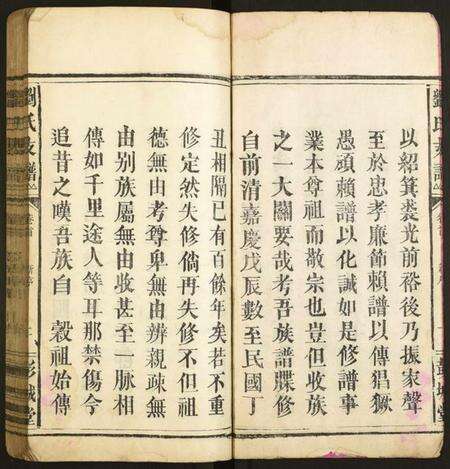 劉氏支譜
以紹箕裘光前裕後乃振家聲
至於忠孝廉節賴譜以傳猖獗
愚頑賴譜以化誠如是修譜事
業本尊祖而敬宗也豈但收族
之一大關要哉考吾族譜牒修
自前清嘉慶戊辰數至民國丁
丑相隔已有百餘年矣若不重
修定然失修倘再失修不但祖
德無由考尊卑無由辨親疎無
由別族屬無由收甚至一脈相
傳如千里途人等耳那禁傷今
追昔之嘆吾族自 穀祖始傳
劉氏支譜
卷首
彭城堂